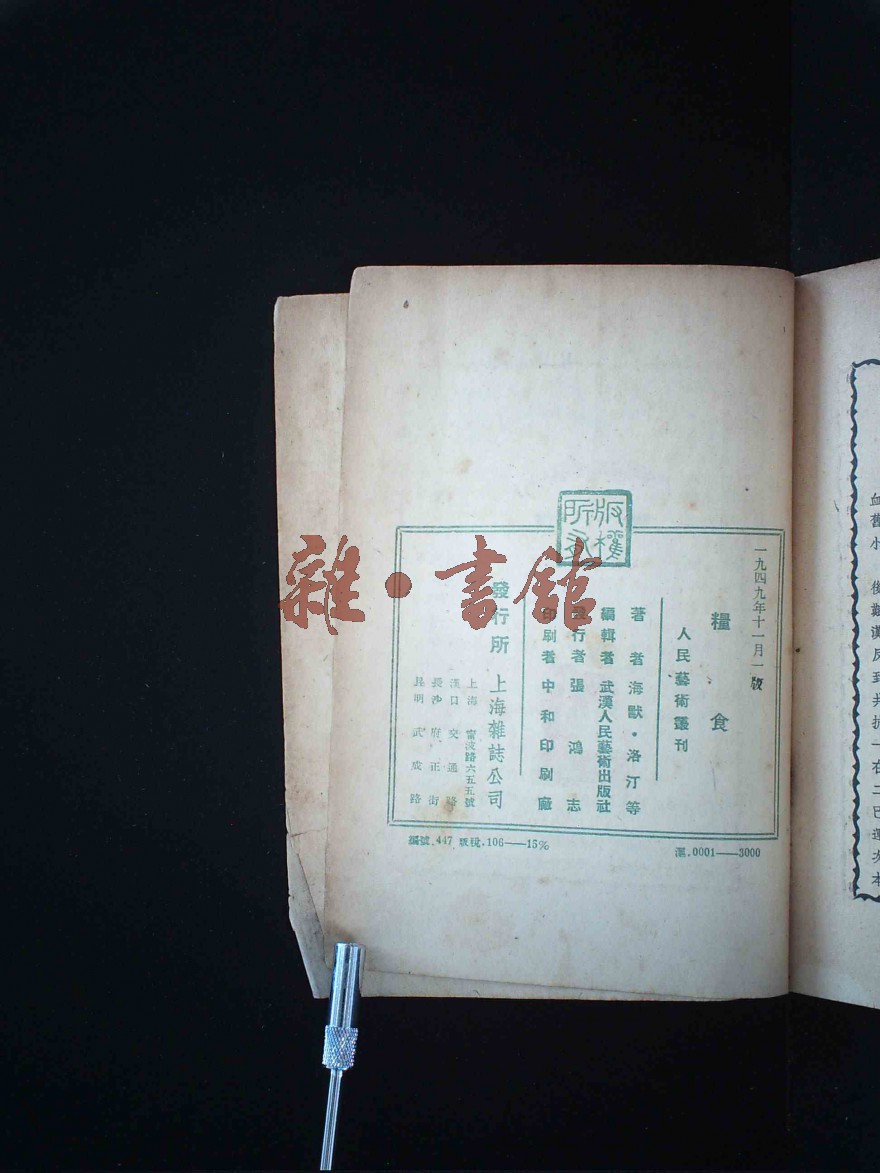 版權所有
一九四九年十一月一版
糧食
人民藝術叢刊
著者海默·洛汀等
編輯者武漢人民藝術出版社
發行者張鴻志
印刷者中和印刷廠
發行所上海雜誌公司
上海寗波路六五五號
漢口交通路
長沙府正街
昆明武成路
編號.447 版稅.106——15%
滬.0001——3000
雜·書館
血舊小
後
漢反到共抗一在二巴蓮次本